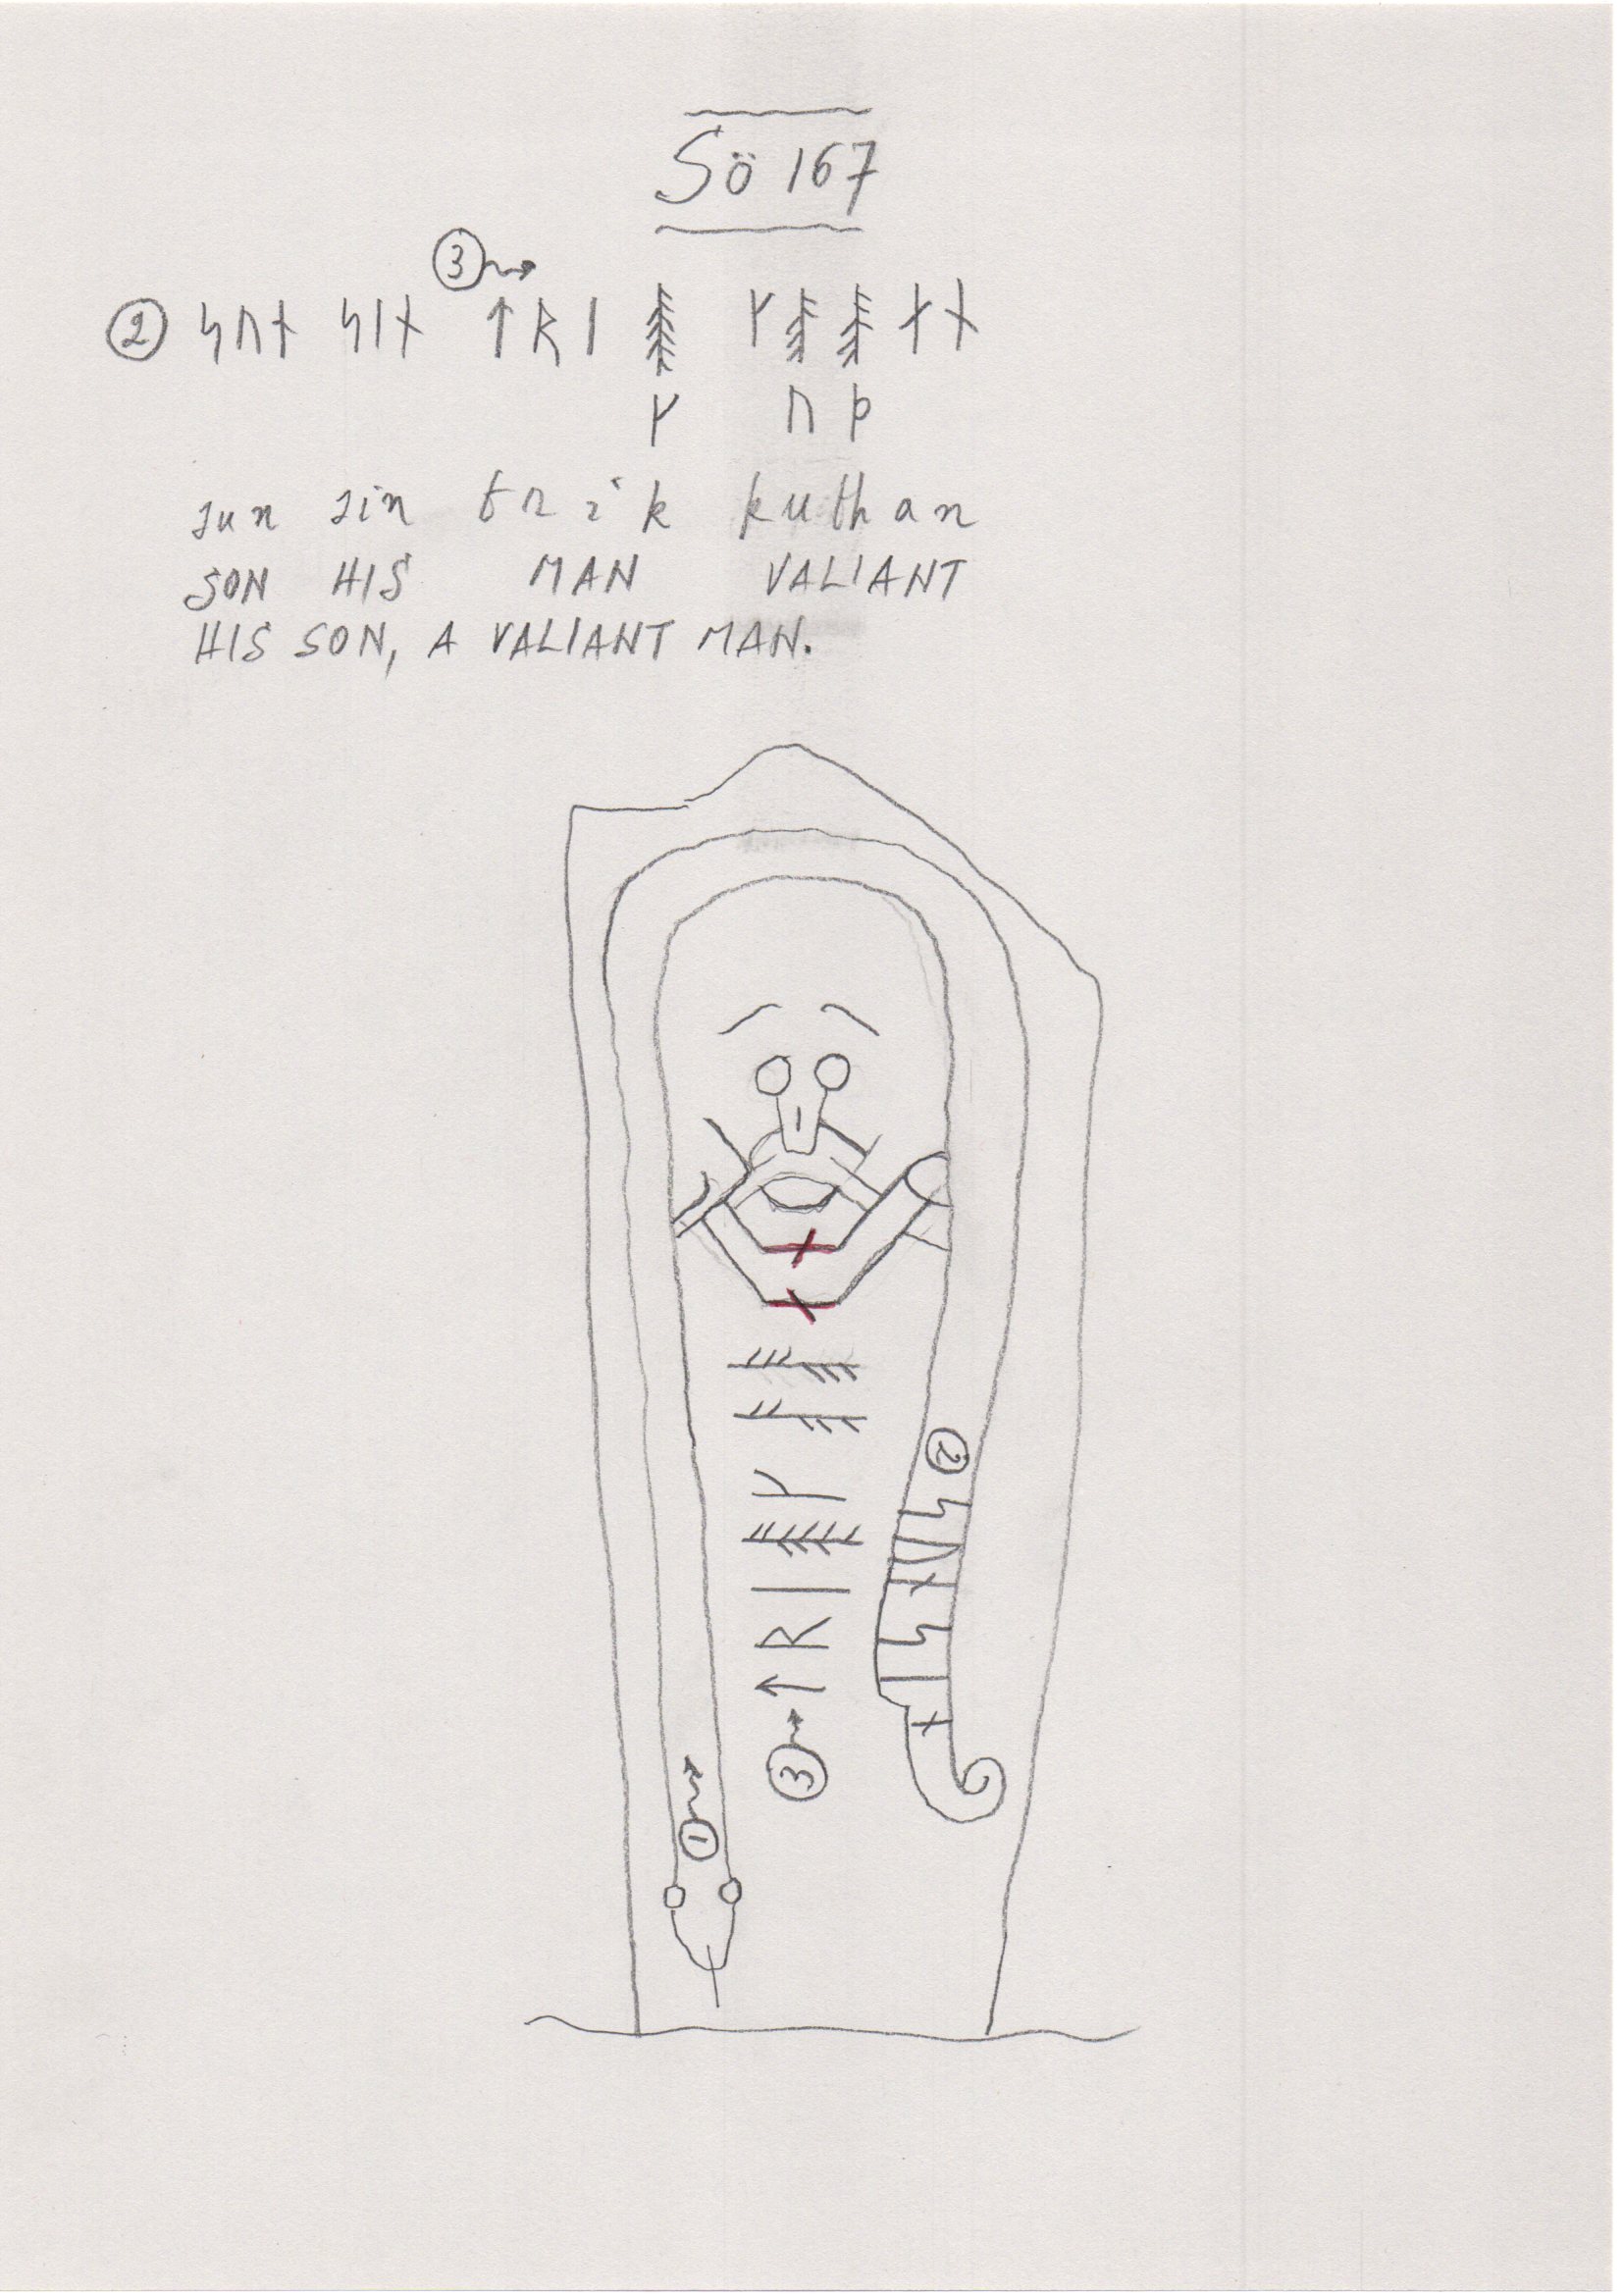 Sö 167
③
② ᛋᚢᚾ ᛋᛁᚾ ᛏᚱᛁ ᚴ ᛅᚾ
ᚴ ᚢᚦ
sun sin trik kuthan
SON HIS MAN VALIANT
HIS SON, A VALIANT MAN.
①
② ᛋᚢᚾᛋᛁᚾ
③ ᛏᚱᛁ ᚴ ᛅᚾ